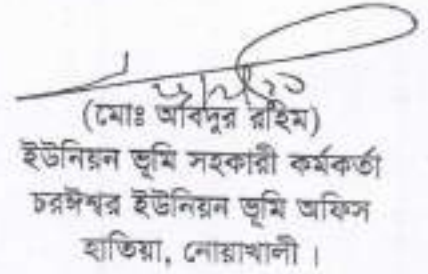 (মোঃ আবদুর রহিম)
ইউনিয়ন ভূমি সহকারী কর্মকর্তা
চরঈশ্বর ইউনিয়ন ভূমি অফিস
হাতিয়া, নোয়াখালী ।